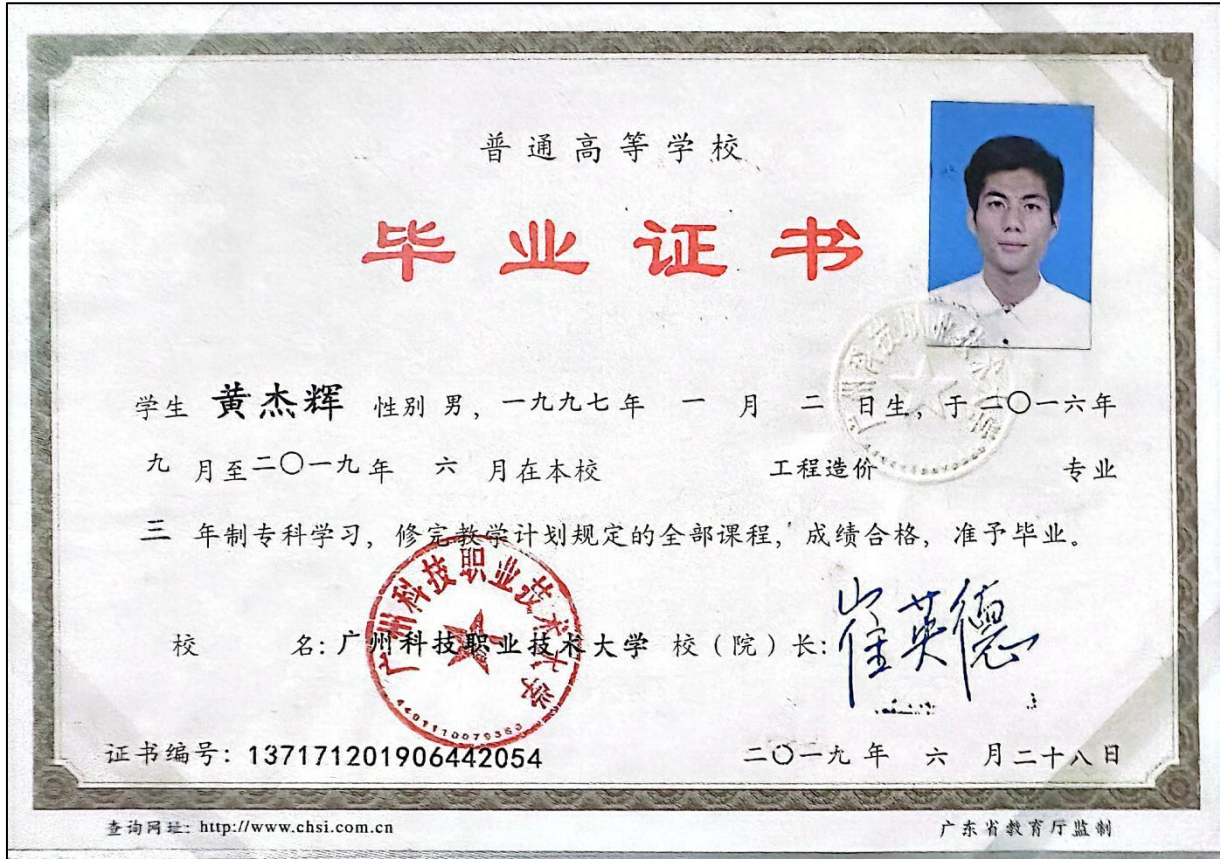 普通高等学校
毕业证书
学生 黄杰辉 性别 男，一九九七年 一 月 二 日生，于二〇一六年
九 月至二〇一九年 六 月在本校 工程造价 专业
三 年制专科学习，修完教学计划规定的全部课程，成绩合格，准予毕业。
校 名：广州科技职业技术大学 校（院）长：崔英德
广州科技职业技术大学
证书编号：137171201906442054 二〇一九年 六 月二十八日
查询网址：http://www.chsi.com.cn 广东省教育厅监制